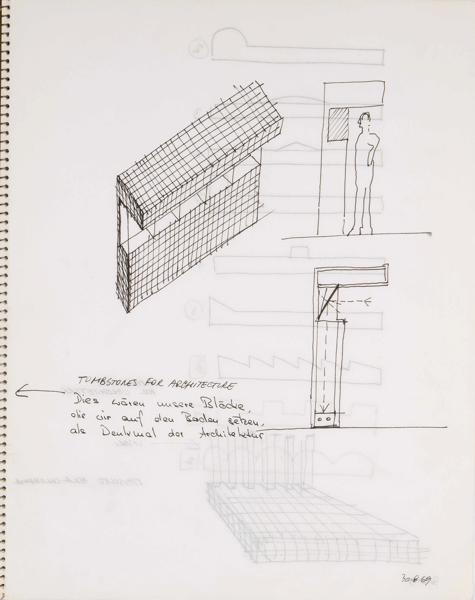 TUMBSTONES FOR ARCHITECTURE
Dies wären unsere Blöcke,
die wir auf den Boden setzen,
als Denkmal der Architektur
30·6·69